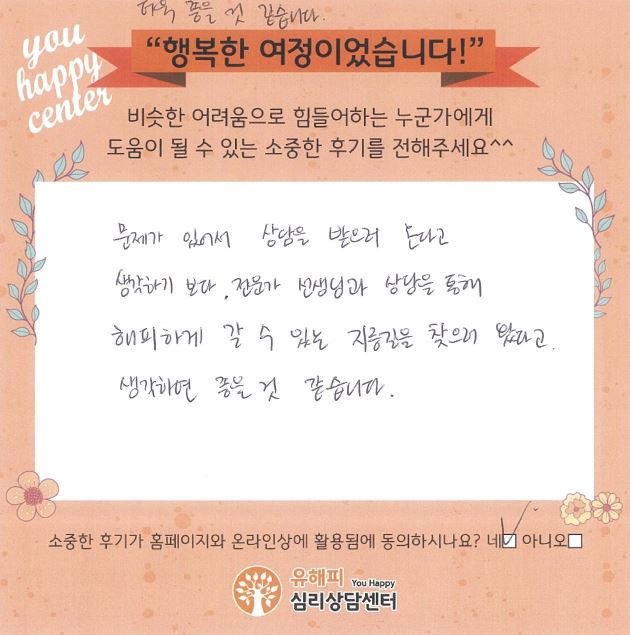 더욱 좋을 것 같습니다.
you
happy
center
“행복한 여정이었습니다!”
비슷한 어려움으로 힘들어하는 누군가에게
도움이 될 수 있는 소중한 후기를 전해주세요^^
문제가 있어서 상담을 받으러 온다고
생각하기 보다, 전문가 선생님과 상담을 통해
해피하게 갈 수 있는 지름길을 찾으러 왔다고
생각하면 좋을 것 같습니다.
소중한 후기가 홈페이지와 온라인상에 활용됨에 동의하시나요? 네 아니오
유해피 You Happy
심리상담센터